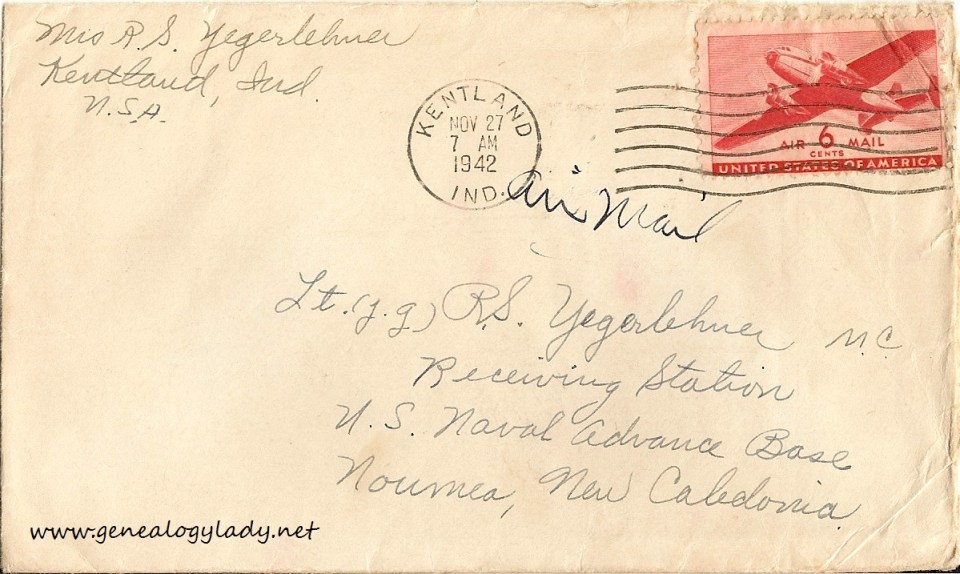 Mrs R. S. Yegerlehner
Kentland, Ind.
U.S.A.
KENTLAND
NOV 27
7 AM
1942
IND.
AIR 6 MAIL
CENTS
UNITED STATES OF AMERICA
Air Mail
Lt. (j.g) R.S. Yegerlehner M.C.
Receiving Station
U.S. Naval Advance Base
Noumea, New Caledonia.
www.genealogylady.net